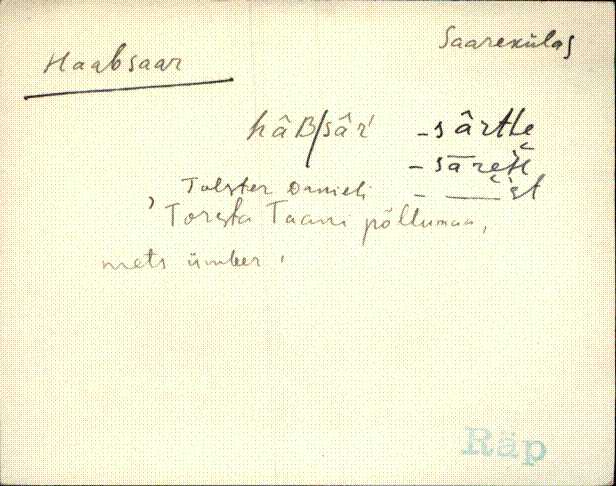 Haabsaar
Saarekülas
hâB/sâr' -sârtte
-sārest
Tolster Danieli - ——st
Torsta Taani põllumaa,
mets ümber.
Räp